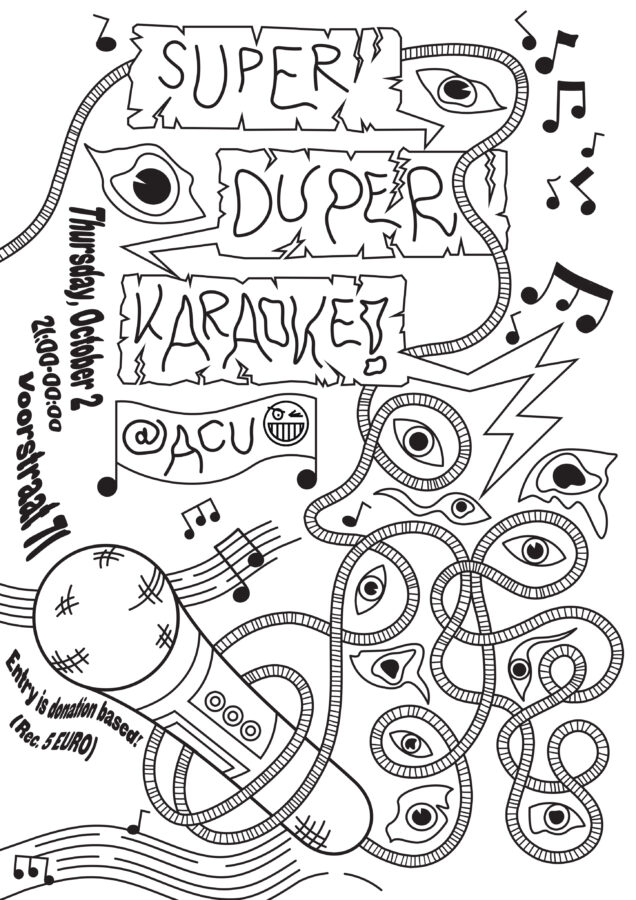 SUPER
DUPER
KARAOKE!
@ACU
Thursday, October 2
21:00-00:00
Voorstraat 71
Entry is donation based!
(Rec. 5 EURO)